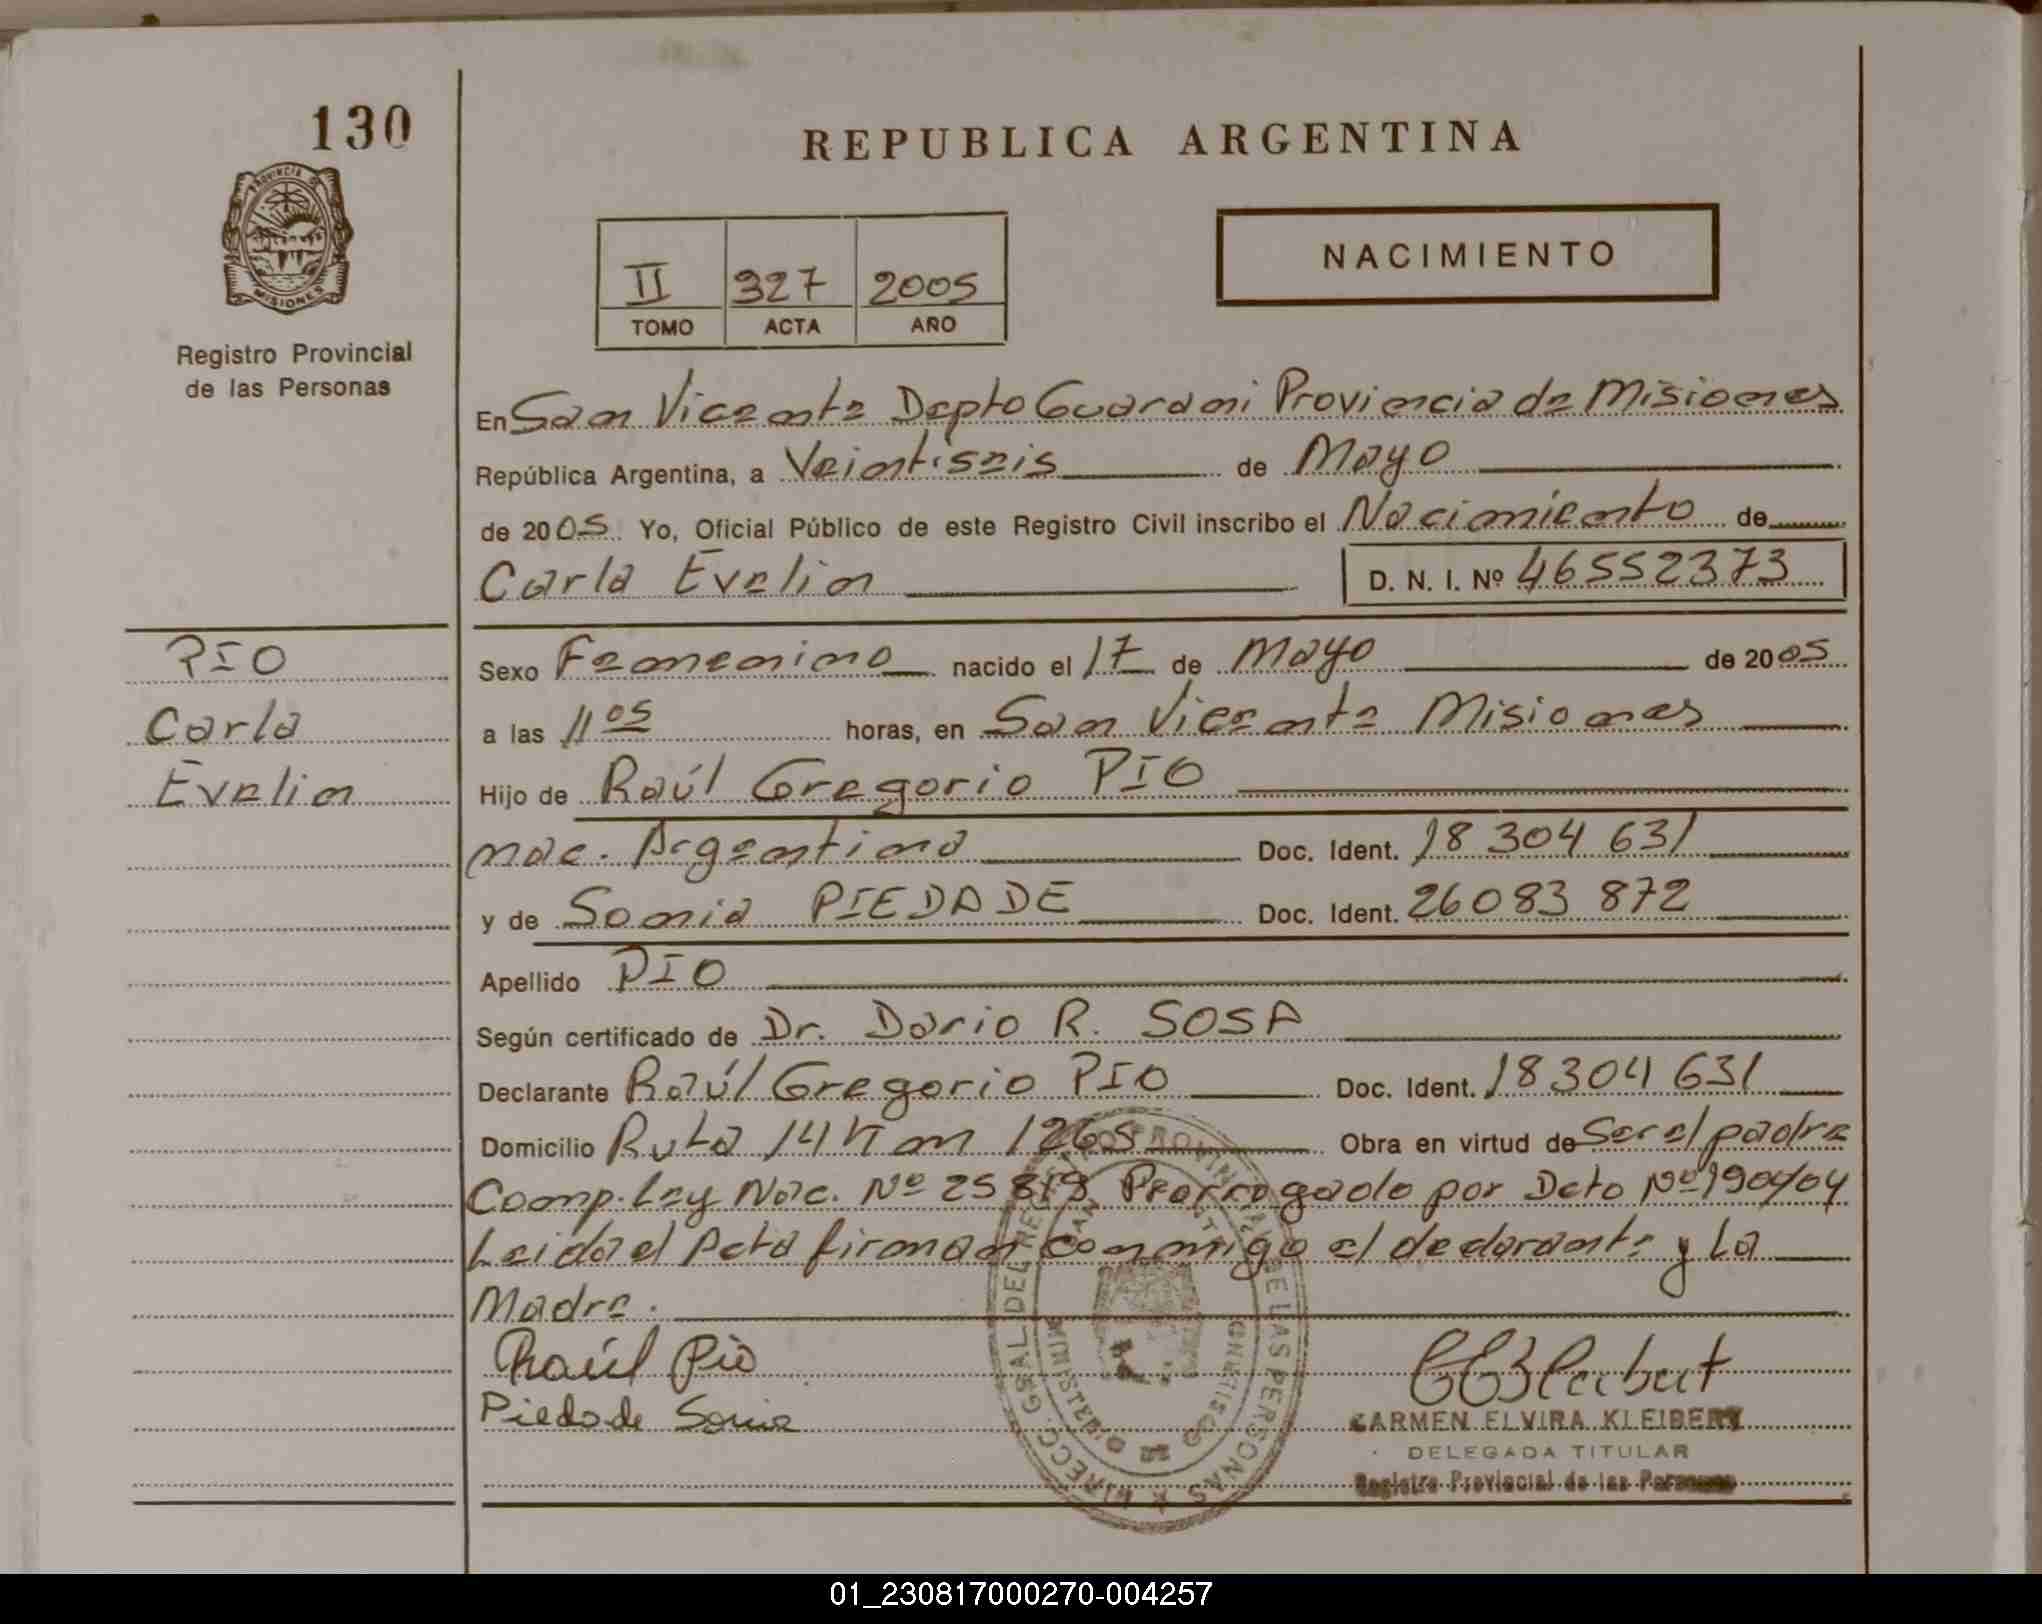 130
PROVINCIA DE
MISIONES
Registro Provincial
de las Personas
REPUBLICA ARGENTINA
NACIMIENTO
II 327 2005
TOMO ACTA AÑO
En San Vicente Depto Guarani Provincia de Misiones
República Argentina, a Veintiseis de Mayo
de 2005 Yo, Oficial Público de este Registro Civil inscribo el Nacimiento de
Carla Evelin D. N. I. Nº 46552373
PIO
Carla
Evelin
Sexo Femenino nacido el 17 de Mayo de 2005
a las 11 05 horas, en San Vicente Misiones
Hijo de Raúl Gregorio PIO
nac. Argentina Doc. Ident. 18 304 631
y de Sonia PIEDADE Doc. Ident. 26083 872
Apellido PIO
Según certificado de Dr. Dario R. SOSA
Declarante Raúl Gregorio PIO Doc. Ident. 18304 631
Domicilio Ruta 14 Km 1265 Obra en virtud de Ser el padre
Comp. Ley Nac. Nº 25819 Prorrogado por Dcto Nº 190/04
Leida el Acta firman conmigo el declarante y La
Madre.
Raúl Pio
Piedade Sonia
CARMEN ELVIRA KLEIBERT
DELEGADA TITULAR
Registro Provincial de las Personas
01_230817000270-004257